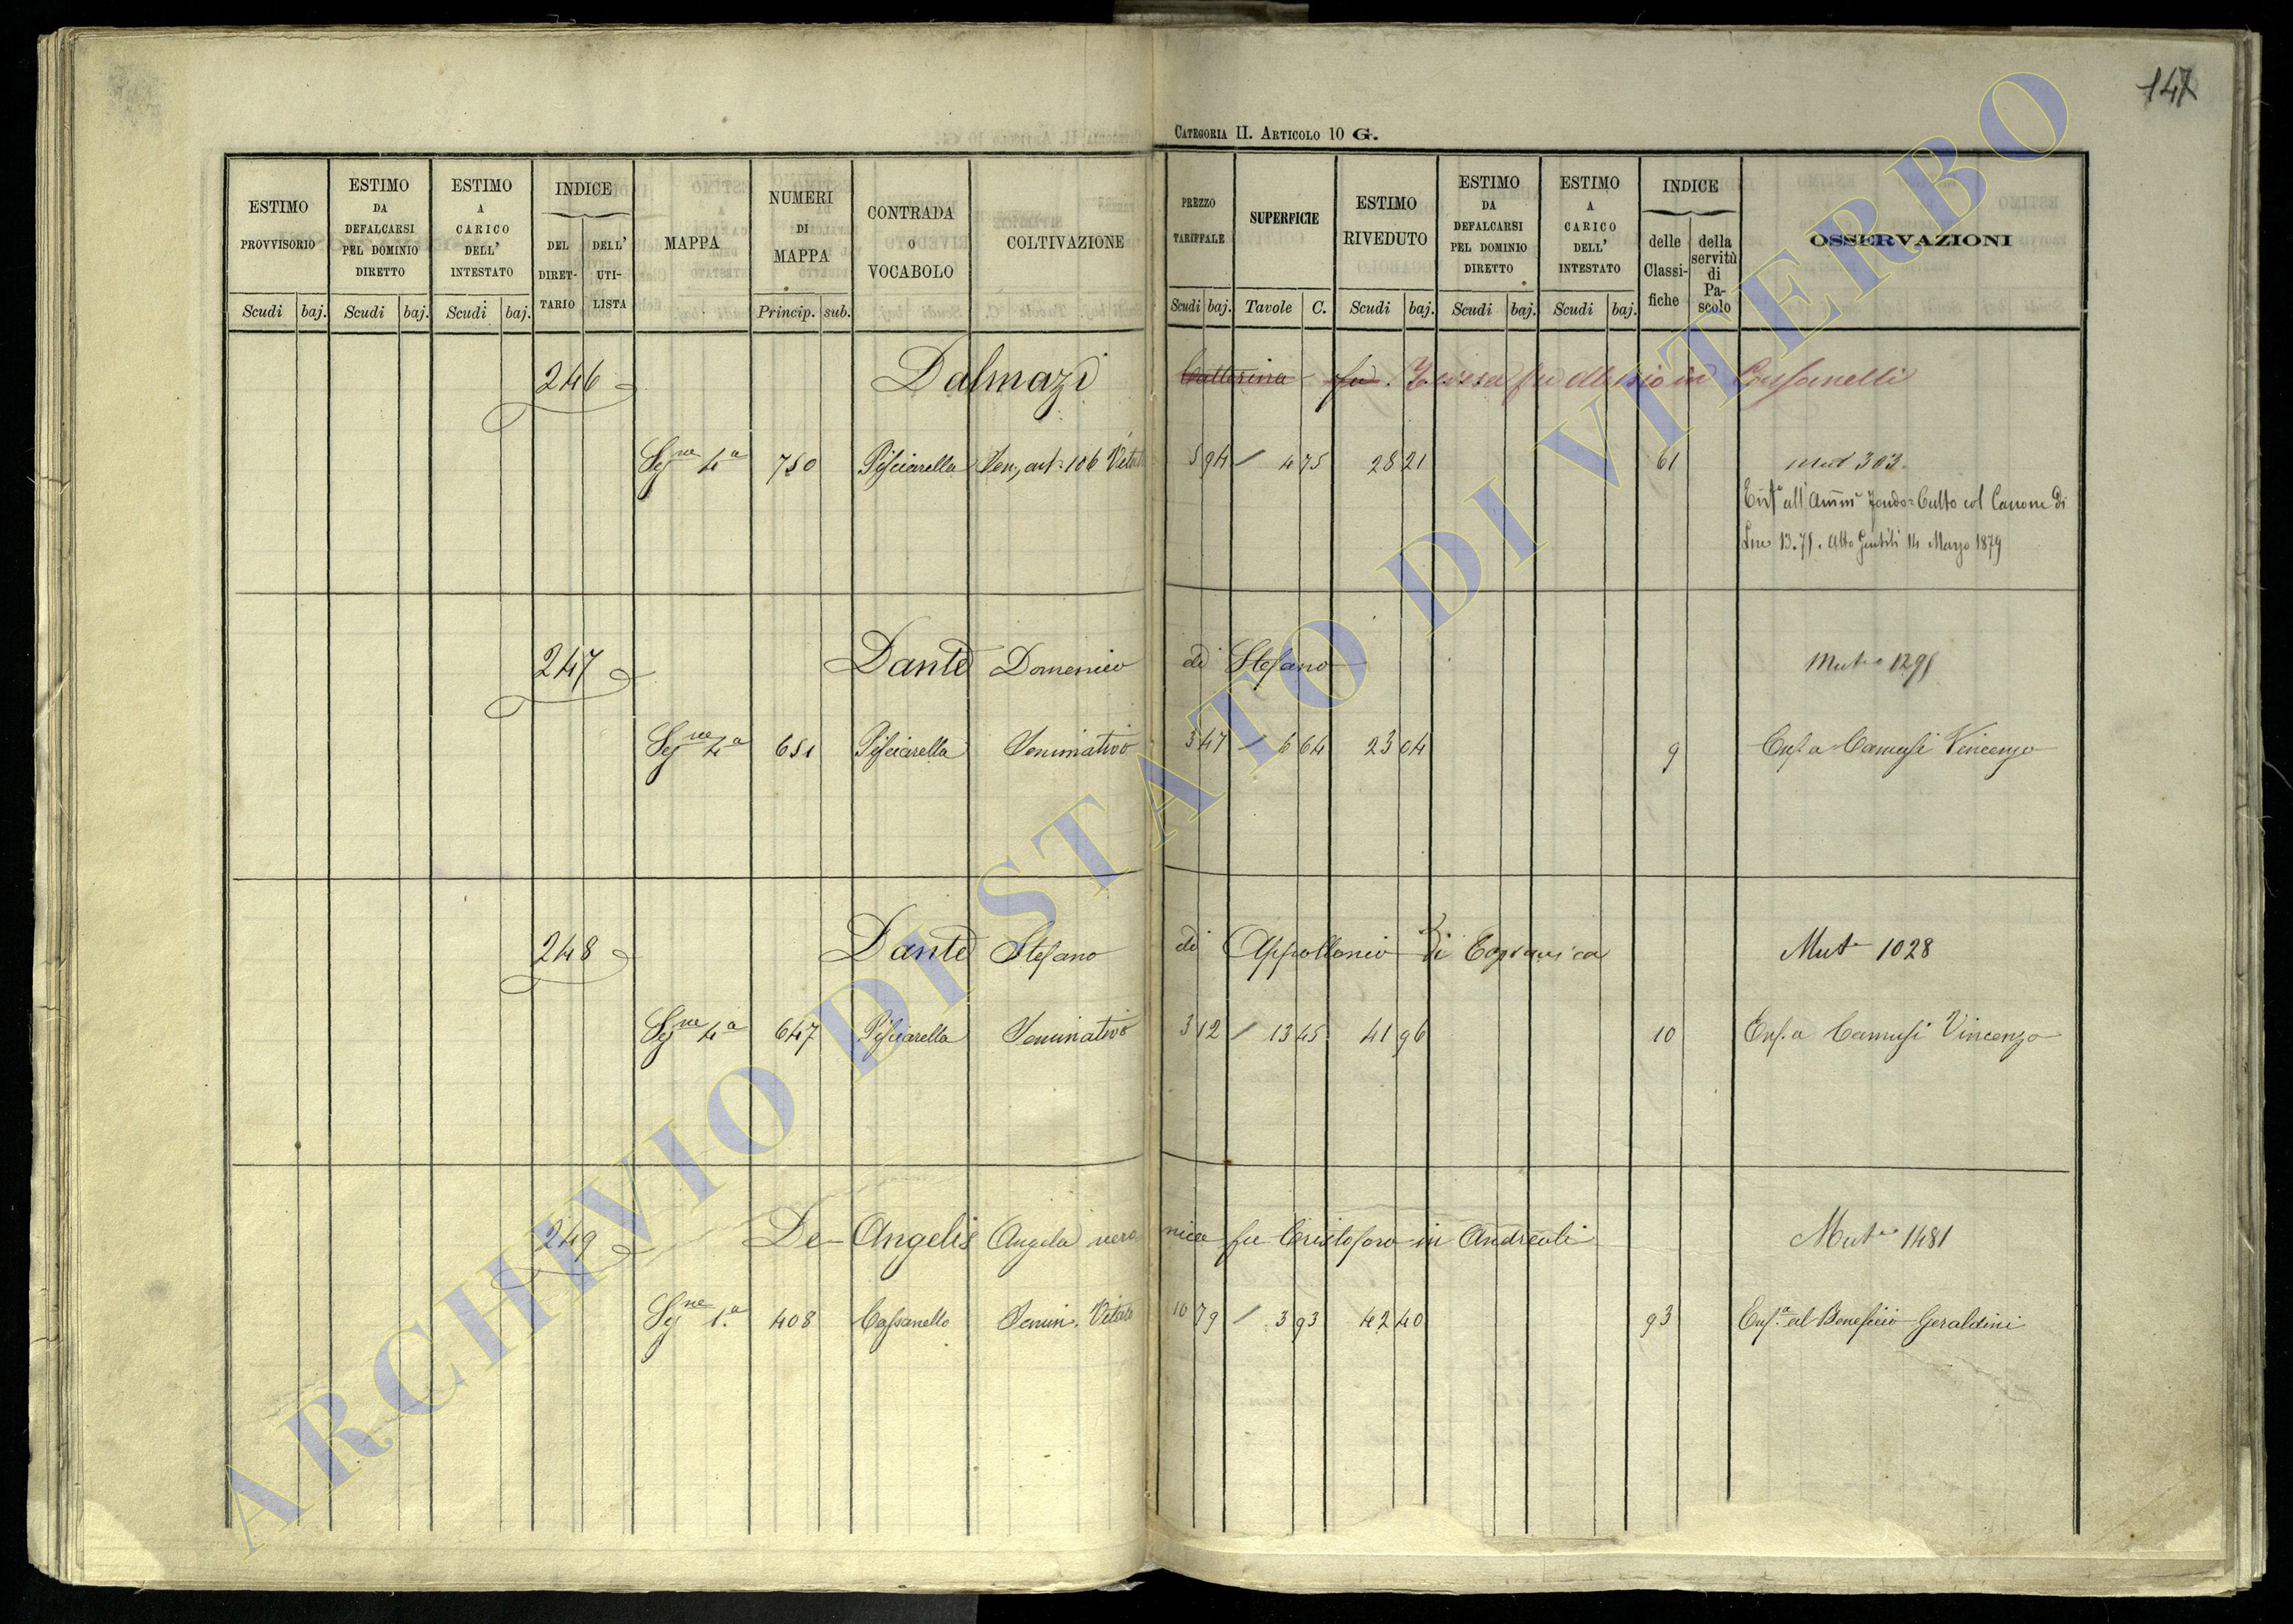 147
CATEGORIA II. ARTICOLO 10 G.
ESTIMO PROVVISORIO
ESTIMO DA DEFALCARSI PEL DOMINIO DIRETTO
ESTIMO A CARICO DELL' INTESTATO
INDICE
DEL DIRET-TARIO
DELL' UTI-LISTA
MAPPA
NUMERI DI MAPPA
CONTRADA O VOCABOLO
COLTIVAZIONE
PREZZO TARIFFALE
SUPERFICIE
ESTIMO RIVEDUTO
ESTIMO DA DEFALCARSI PEL DOMINIO DIRETTO
ESTIMO A CARICO DELL' INTESTATO
INDICE
delle Classi-fiche
della servitù di Pa-scolo
OSSERVAZIONI
Scudi baj. Scudi baj. Scudi baj. Princip. sub. Scudi baj. Tavole C. Scudi baj. Scudi baj. Scudi baj.
246 Dalmazi Catterina fu Teresa fu Alessio in
Sezne 4a 750 Pisciarella Sem, art. 106 Vitat 5 94 / 4 75 28 21 61 Mut 303
Enfa all' Ammne Fondo=Culto col Canone di
Lire 13.71. Atto Gentili 14 Marzo 1879
247 Dante Domenico di Stefano
Sezne 4a 651 Pisciarella Seminativo 3 47 / 6 64 23 04 9 Enf. a Camusi Vincenzo
248 Dante Stefano di Appollonio di Capranica Mut 1028
Sezne 4a 647 Pisciarella Seminativo 3 12 / 13 45 41 96 10 Enf. a Camusi Vincenzo
249 De Angelis Angela veronica fu Cristofaro in Andreoli Mut 1481
Sezne 1a 408 Cassanello Semin. Vitato 10 79 / 3 93 42 40 93 Enfa al Beneficio Geraldini
ARCHIVIO DI STATO DI VITERBO